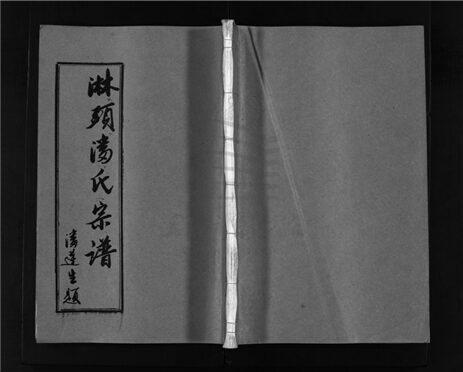 淋頭潘氏宗谱
潘蓮生題